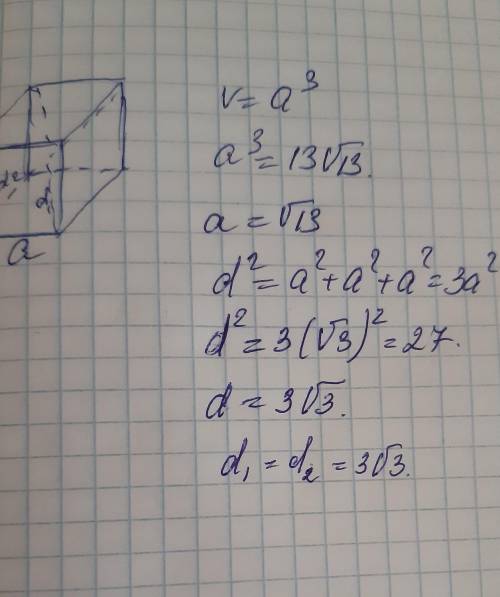 V = a³
a³ = 13√13.
a = √13
d² = a² + a² + a² = 3a²
d² = 3(√3)² = 27.
d = 3√3.
d₁ = d₂ = 3√3.
a